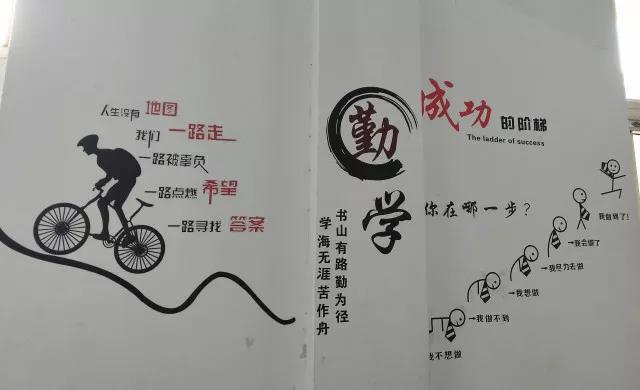 人生没有 地图
我们 一路走
一路被辜负
一路点燃 希望
一路寻找 答案
勤
学
书山有路勤为径
学海无涯苦作舟
成功的阶梯
The ladder of success
你在哪一步?
我做到了!
→我会做了
→我尽力去做
→我想做
→我做不到
我不想做